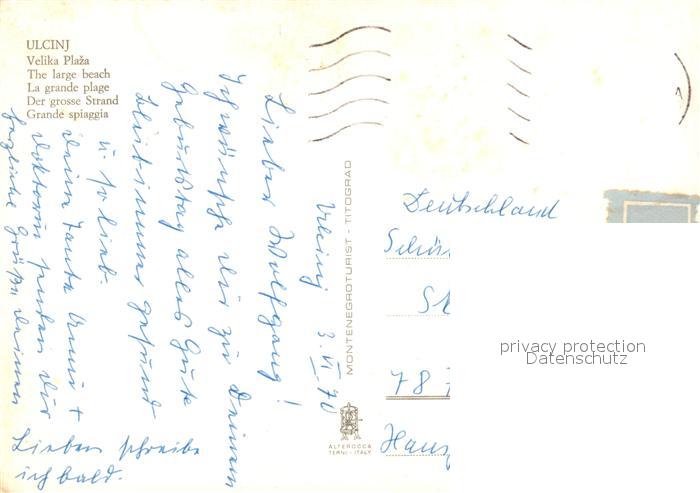 ULCINJ
Velika Plaža
The large beach
La grande plage
Der grosse Strand
Grande spiaggia
Ulcinj 3. VI. 70
Lieber Wolfgang!
Ich wünsche Dir zu Deinem
Geburtstag alles Gute
bleib immer gesund
u. so lieb.
Deine Tante Anni +
Doktorin senden Dir
herzliche Grüße Deinen
Lieben schreibe
ich bald.
MONTENEGROTURIST - TITOGRAD
ALTEROCCA
TERNI - ITALY
Deutschland
78
privacy protection
Datenschutz